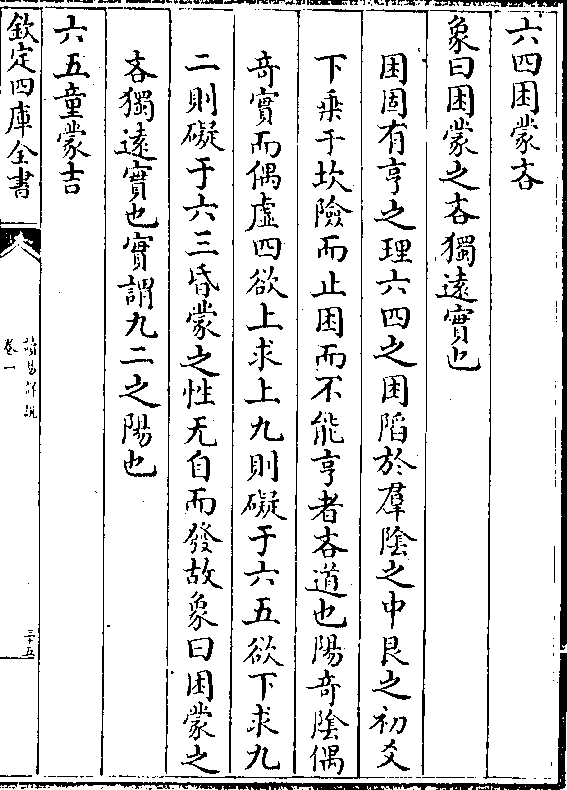 六四困蒙吝
象曰困蒙之吝獨遠實也
困固有亨之理六四之困陷於羣陰之中艮之初爻
下乗于坎險而止困而不能亨者吝道也陽奇陰偶
奇實而偶虚四欲上求上九則礙于六五欲下求九
二則礙于六三昏蒙之性无自而發故象曰困蒙之
吝獨遠實也實謂九二之陽也
六五童蒙吉
欽定四庫全書
讀易詳說
卷一
三十五